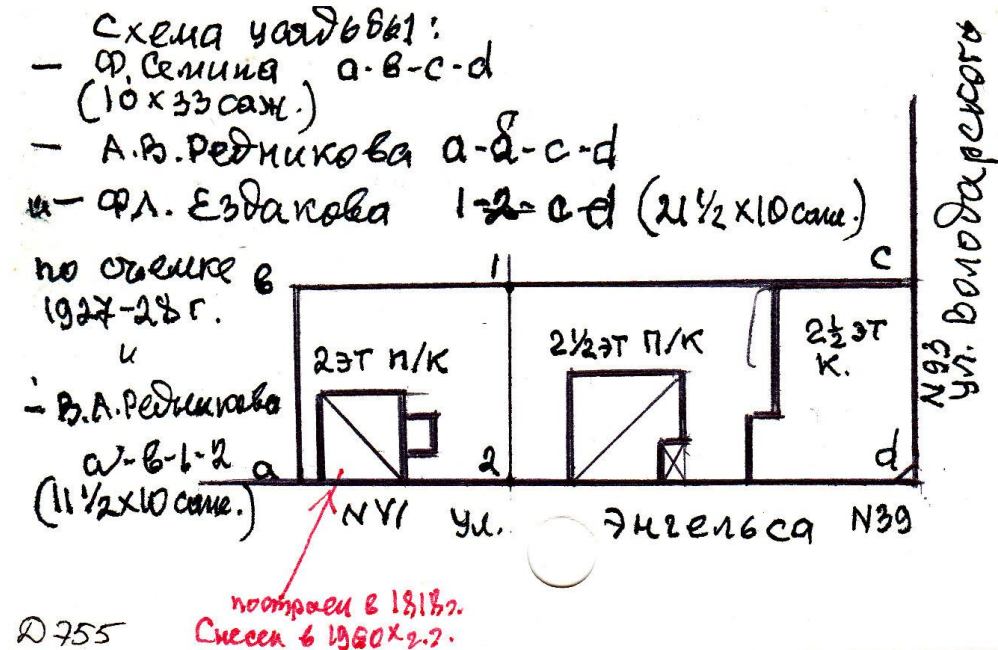 Схема усадьбы:
— Ф. Семина а-в-с-d
(10 х 33 саж.)
— А.В. Редникова а-в-с-d
— Ф.Л. Ездакова 1-2-с-d (21 1/2 х 10 саж.)
по съемке
1927-28 г.
и
- В.А. Редникова
а-в-1-2
(11 1/2 х 10 саж.)
в
1
с
2 эт п/к
2 1/2 эт п/к
2 1/2 эт
к.
а
2
d
N 41
ул. Энгельса
N39
N93
ул. Володарского
построен в 1818г.
Снесен в 1960х г.г.
D 755